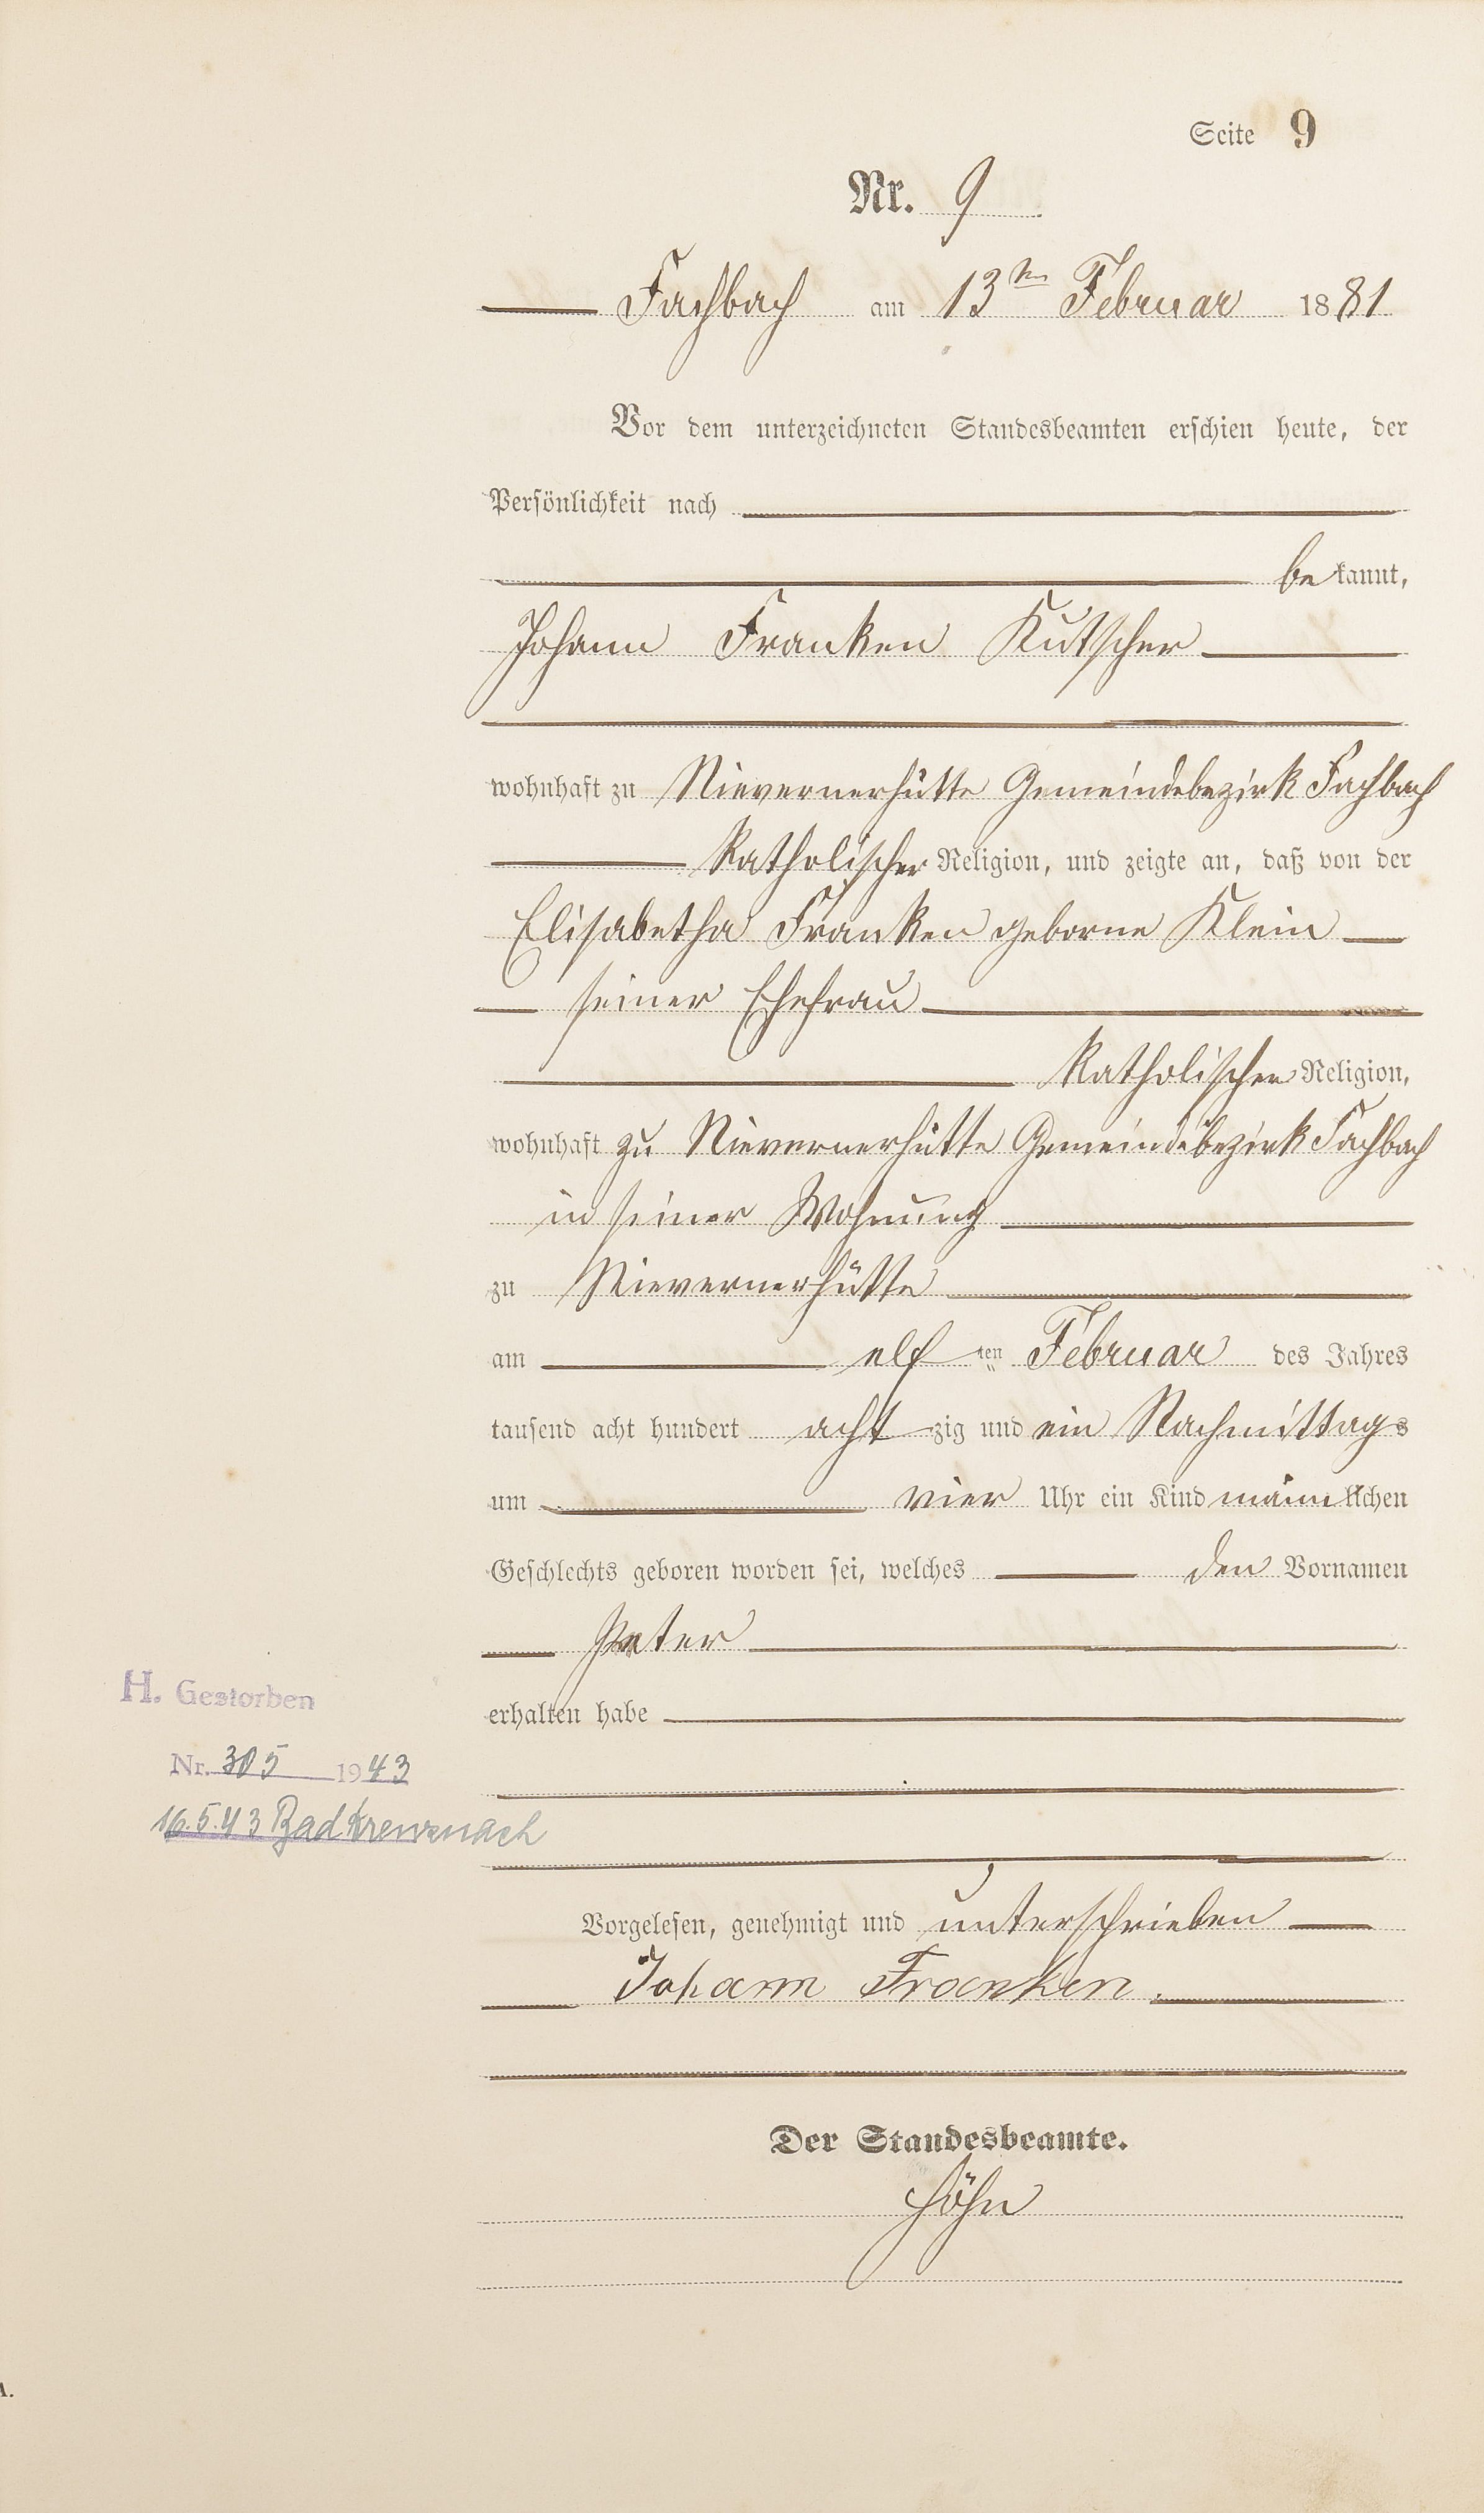 Seite 9
Nr. 9
Fachbach am 13ten Februar 1881
Vor dem unterzeichneten Standesbeamten erschien heute, der
Persönlichkeit nach
bekannt,
Johann Franken Kutscher
wohnhaft zu Nievernerhütte Gemeindebezirk Fachbach
Katholischer Religion, und zeigte an, daß von der
Elisabetha Franken geborne Klein
seiner Ehefrau
Katholischer Religion,
wohnhaft zu Nievernerhütte Gemeindebezirk Fachbach
in seiner Wohnung
zu Nievernerhütte
am elf ten Februar des Jahres
tausend acht hundert achtzig und ein Nachmittags
um vier Uhr ein Kind männlichen
Geschlechts geboren worden sei, welches den Vornamen
Peter
erhalten habe
H. Gestorben
Nr. 305 1943
16.5.43 Bad Kreuznach
Vorgelesen, genehmigt und unterschrieben
Johann Franken.
Der Standesbeamte.
Höhn